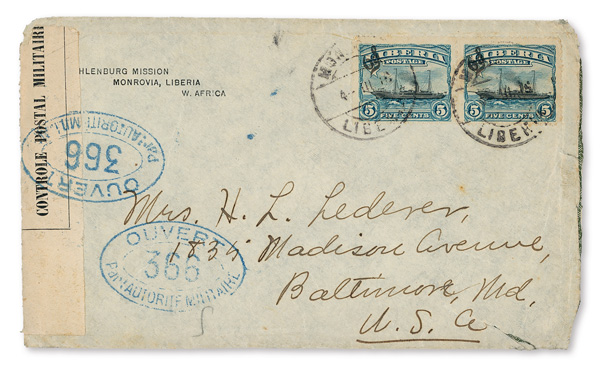 CONTROLE POSTAL MILITAIRE
OUVERT
366
PAR AUTORITE MILITAIRE
HLENBURG MISSION
MONROVIA, LIBERIA
W. AFRICA
LIBERIA
POSTAGE
5 5
FIVE CENTS
LIBERIA
POSTAGE
5 5
FIVE CENTS
MON
LIBE
LIBERI
Mrs. H. L. Lederer,
1835 Madison Avenue,
Baltimore, Md.
U. S. a
OUVERT
366
PAR AUTORITE MILITAIRE